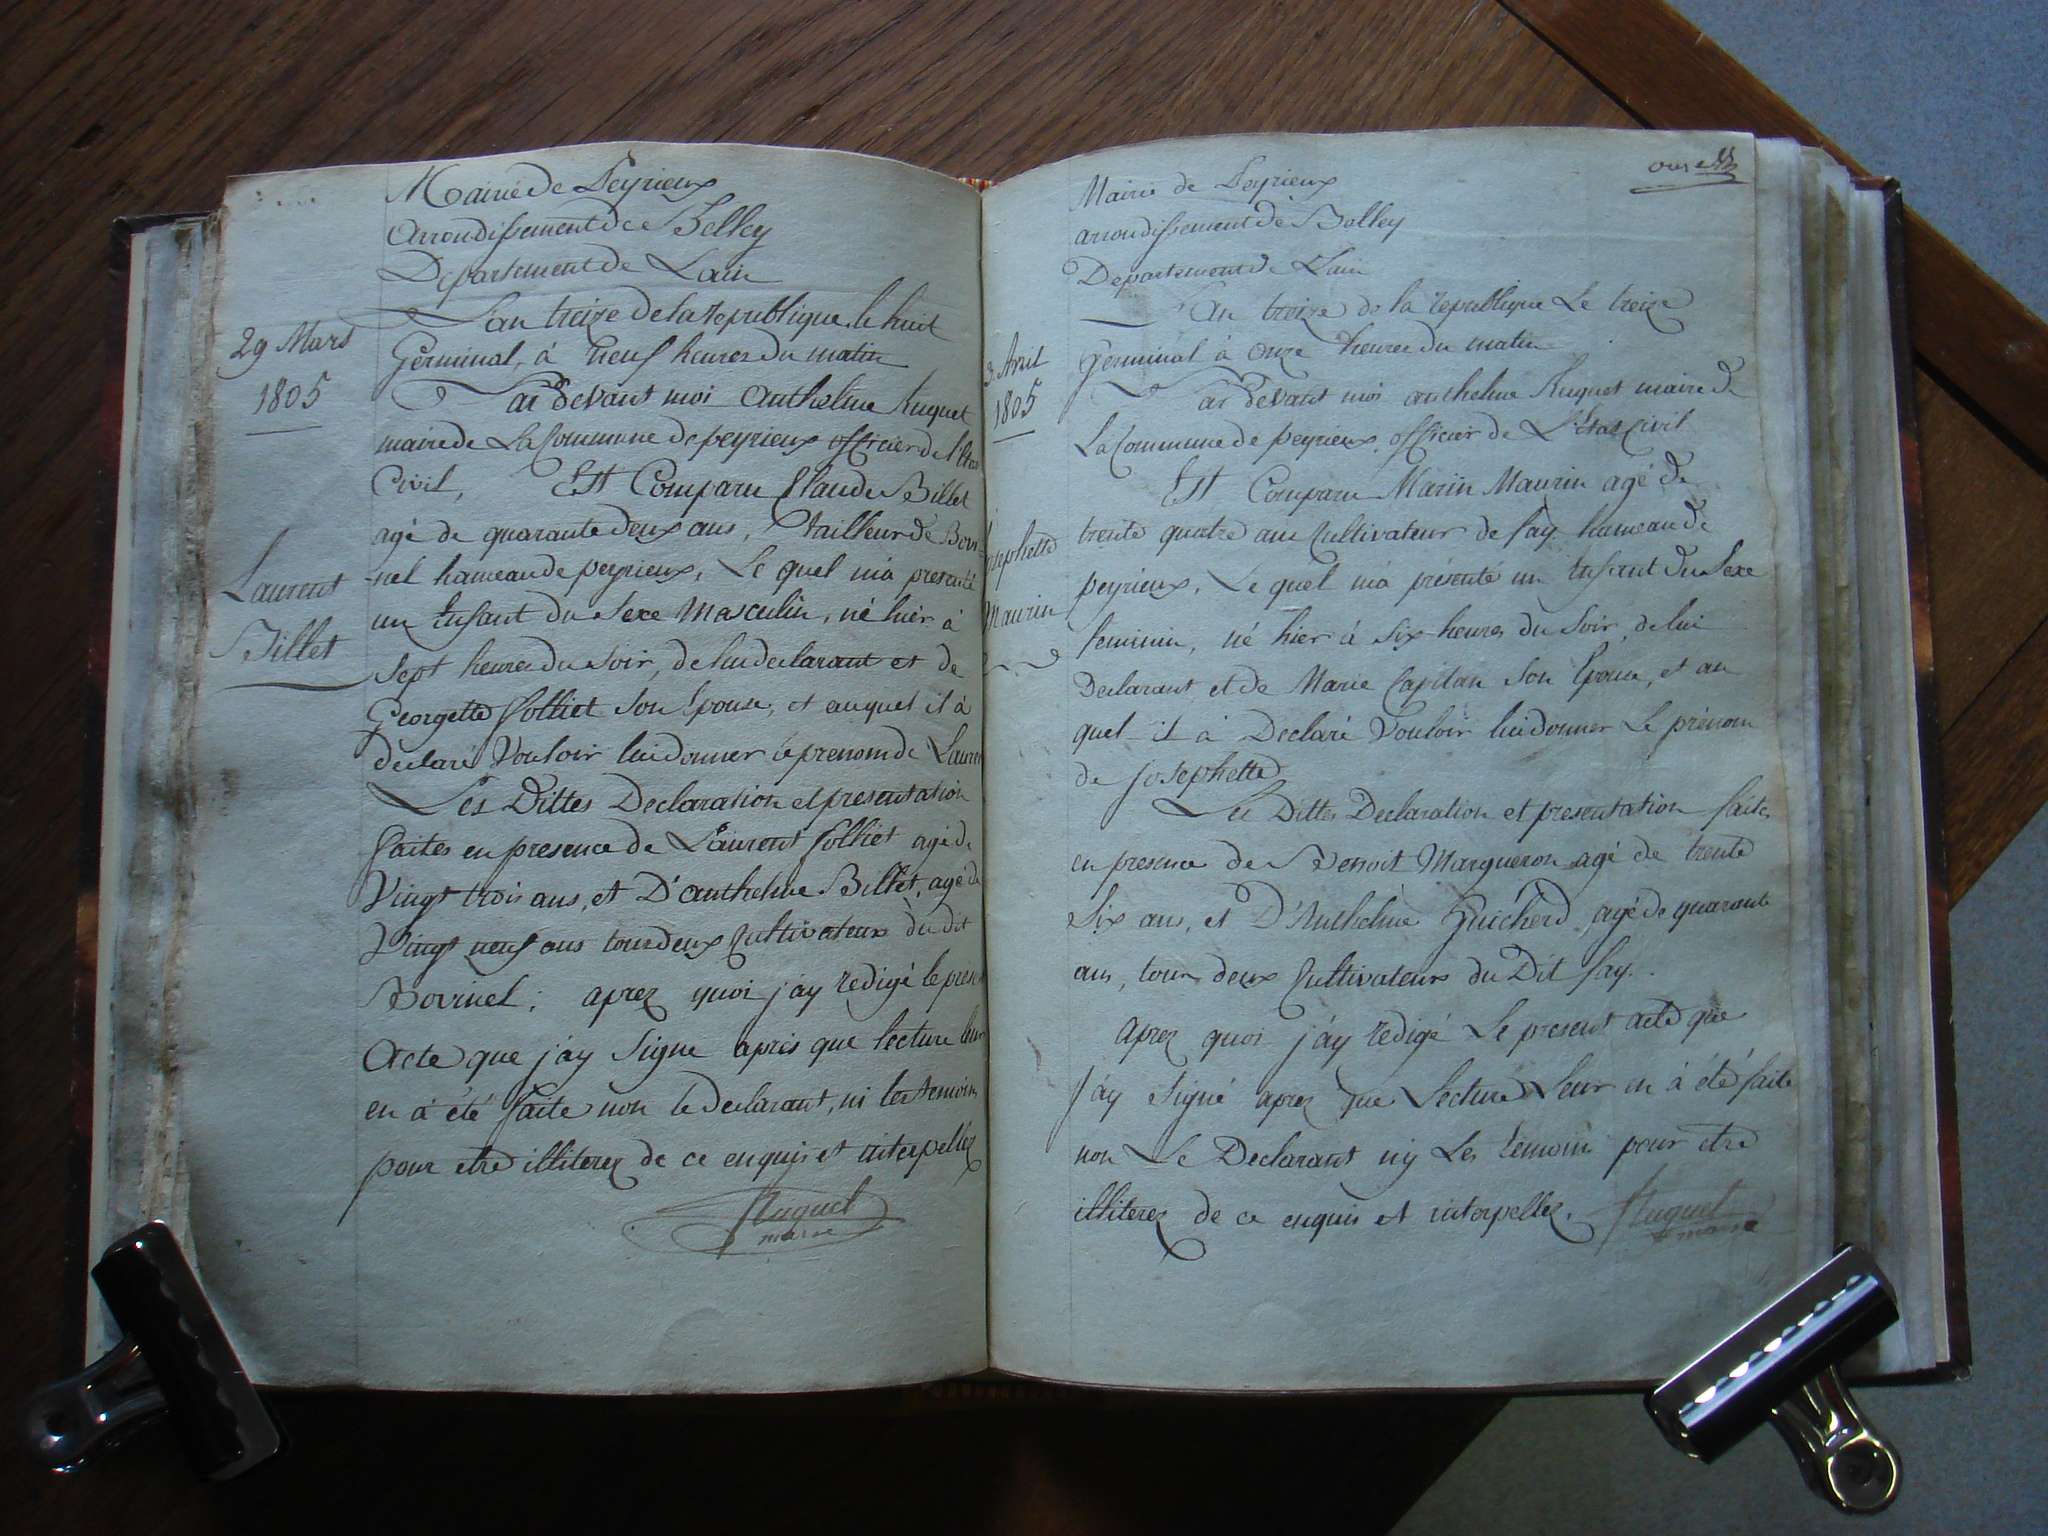 Mairie de Peyrieux
Arrondissement de Belley
Departement de Lain
29 Mars
1805
L'an treize de la republique, le huit
Germinal, à neuf heures du matin
Par devant moi Anthelme Huguet
maire de La Commune de peyrieux officier de l'Etat
Civil, Est Comparu Claude Billet
agé de quarante deux ans, tailleur de Bovi
nel hameau de peyrieux, Le quel m'a presenté
Laurent
Billet
un Enfant du Sexe Masculin, né hier à
Sept heures du Soir, de lui declarant et de
Georgette Jolliet Son Epouse, et auquel il à
declaré Vouloir lui donner le prenom de Lauren
Les Dittes Declaration et presentation
faites en presence de Laurent Jolliet agé de
Vingt trois ans, et D'anthelme Billet, agé de
Vingt neuf ans tous deux Cultivateurs du dit
Bovinel; aprez quoi j'ay redigé le présent
Acte que j'ay Signe après que lecture leur
en a été faite non le declarant, ni les temoins
pour etre illiterez de ce enquis et interpellez
Huguet
maire
onze
Mairie de Peyrieux
arrondissement de Belley
Departement de Lain
3 Avril
1805
L'An treize de la republique Le treize
Germinal à Onze heures du matin
Par devant moi anthelme Huguet maire de
La Commune de peyrieux officier de L'Etat Civil
Est Comparu Marin Maurin agé de
trente quatre ans Cultivateur de fay hameau de
Josephette
Maurin
peyrieux, Le quel m'a présenté un Enfant du Sexe
feminin, né hier à Six heures du Soir, de lui
Declarant et de Marie Capitan Son Epouse, et au
quel il à Declaré Vouloir lui donner Le prénom
de Josephette
Les Dittes Declaration et presentation faites
en presence de Benoit Margueron agé de trente
Six ans, et D'Anthelme Guicherd agé de quarante
ans, tous deux Cultivateurs du Dit fay.
Aprez quoi j'ay redigé Le present acte que
J'ay Signé aprez que Lecture Leur en à été faite
non Le Declarant ny Les temoins pour etre
illiterez de ce enquis et interpellez. Huguet
maire